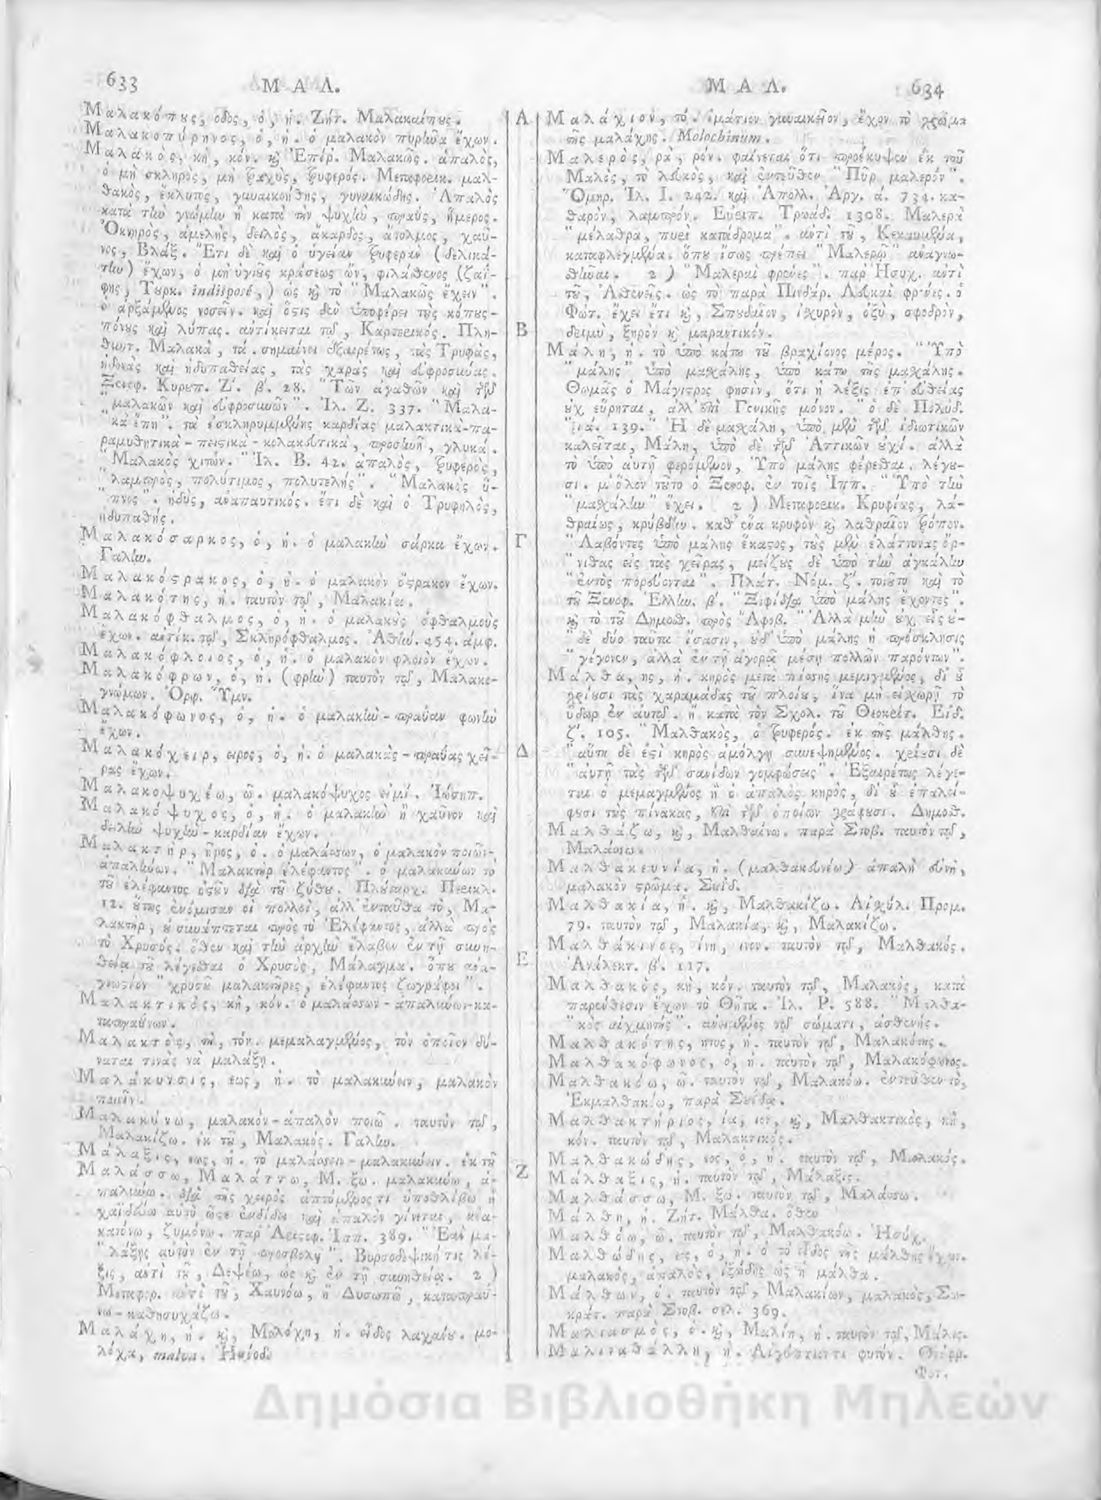 633 Μ Α Λ.
Μαλακόπους, οδος, ὁ, ἡ. Ζήτ. Μαλακαίπους.
Μαλακοπύρηνος, ὁ, ἡ. ὁ μαλακὸν πυρῆνα ἔχων.
Μαλακὸς, κὴ, κόν. καὶ Ἐπίρ. Μαλακῶς. ἁπαλὸς,
ὁ μὴ σκληρὸς, μὴ τραχὺς, τρυφερός. Μεταφορικ. μαλ-
θακὸς, ἔκλυτος, γυναικοήθης, γυναικώδης. Ἁπαλὸς
κατὰ τὴν γνώμην ἢ κατὰ τὴν ψυχὴν, πραῢς, ἥμερος.
Ὀκνηρὸς, ἀμελὴς, δειλὸς, ἄκαρδος, ἄτολμος, χαῦ-
νος, Βλάξ. Ἔτι δὲ καὶ ὁ ὑγείαν τρυφερὰν (δελικά-
την) ἔχων, ὁ μὴ ὑγιοῦς κράσεως ὢν, φιλάσθενος (ζαΐ-
φης, Τουρκ. indisposé,) ὡς καὶ τὸ " Μαλακῶς ἔχειν".
ὁ ἀρξάμενος νοσεῖν. καὶ ὅστις δὲν ὑποφέρει τοὺς κόπους-
πόνους καὶ λύπας. ἀντίκειται τῷ, Καρτερικός. Πλη-
θυντ. Μαλακὰ, τά. σημαίνει ἐξαιρέτως, τὰς Τρυφὰς,
ἡδονὰς καὶ ἡδυπαθείας, τὰς χαρὰς καὶ εὐφροσύνας.
Ξενοφ. Κυροπ. Ζ΄. β΄. 28. "Τῶν ἀγαθῶν καὶ τῶν
" μαλακῶν καὶ εὐφροσυνῶν". Ἰλ. Ζ. 337. "Μαλα-
" κὰ ἔπη". τὰ ἐσκληρυμμένης καρδίας μαλακτικὰ-πα-
ραμυθητικὰ-πειστικὰ-κολακευτικὰ, προσηνῆ, γλυκά.
" Μαλακὸς χιτών. "Ἰλ. Β. 42. ἁπαλὸς, τρυφερὸς,
" λαμπρὸς, πολύτιμος, πολυτελής". "Μαλακὸς ὕ-
" πνος". ἡδὺς, ἀναπαυτικός. ἔτι δὲ καὶ ὁ Τρυφηλὸς,
ἡδυπαθής.
Μαλακόσαρκος, ὁ, ἡ. ὁ μαλακὴν σάρκα ἔχων.
Γαλην.
Μαλακόστρακος, ὁ, ἡ. ὁ μαλακὸν ὄστρακον ἔχων.
Μαλακότης, ἡ. ταυτὸν τῷ, Μαλακία.
Μαλακόφθαλμος, ὁ, ἡ. ὁ μαλακοὺς ὀφθαλμοὺς
ἔχων. ἀντίκ. τῷ, Σκληρόφθαλμος. Ἀθήν. 454. ἀμφ.
Μαλακόφλοιος, ὁ, ἡ. ὁ μαλακὸν φλοιὸν ἔχων.
Μαλακόφρων, ὁ, ἡ. (φρὴν) ταυτὸν τῷ, Μαλακο-
γνώμων. Ὀρφ. Ὕμν.
Μαλακόφωνος, ὁ, ἡ. ὁ μαλακὴν-πραεῖαν φωνὴν
ἔχων.
Μαλακόχειρ, ειρος, ὁ, ἡ. ὁ μαλακὰς-πραείας χεῖ-
ρας ἔχων.
Μαλακοψυχέω, ῶ. μαλακόψυχος εἰμί. Ἰώσηπ.
Μαλακόψυχος, ὁ, ἡ. ὁ μαλακὴν ἢ χαῦνον καὶ
δειλὴν ψυχὴν-καρδίαν ἔχων.
Μαλακτὴρ, ῆρος, ὁ. ὁ μαλάσσων, ὁ μαλακὸν ποιῶν,
ἁπαλύνων. "Μαλακτὴρ ἐλέφαντος". ὁ μαλακύνων τὸ
τοῦ ἐλέφαντος ὀστοῦν διὰ τοῦ ζύθου. Πλούταρχ. Περικλ.
12. οὕτως ἐνόμισαν οἱ πολλοί, ἀλλ' ἐνταῦθα τὸ, Μα-
λακτὴρ, οὐ συνάπτεται πρὸς τὸ Ἐλέφαντος, ἀλλὰ πρὸς
τὸ Χρυσός. ὅθεν καὶ τὴν ἀρχὴν ἔλαβεν ἐν τῇ συνη-
θείᾳ τὸ λέγεσθαι ὁ Χρυσὸς, Μάλαγμα. ὅπου ἀνα-
γνωστέον "χρυσοῦ μαλακτῆρες, ἐλέφαντος ζωγράφοι".
Μαλακτικὸς, κὴ, κόν. ὁ μαλάσσων-ἁπαλύνων-κα-
ταπραΰνων.
Μαλακτὸς, τὴ, τόν. μεμαλαγμένος, τὸν ὁποῖον δύ-
ναταί τινὰς νὰ μαλάξῃ.
Μαλάκυνσις, εως, ἡ. τὸ μαλακύνειν, μαλακὸν
ποιεῖν.
Μαλακύνω, μαλακὸν-ἁπαλὸν ποιῶ. ταυτὸν τῷ,
Μαλακίζω. ἐκ τοῦ, Μαλακός. Γαλην.
Μάλαξις, εως, ἡ. τὸ μαλάσσειν-μαλακύνειν. ἐκ τοῦ
Μαλάσσω, Μαλάττω, Μ. ξω. μαλακύνω, ἁ-
παλύνω. διὰ τῆς χειρὸς ἁπτόμενός τι ὑποθλίβω ἢ
χαϊδεύω αὐτὸ ὥστε ἐνδίδει καὶ ἁπαλὸν γίνεται,
ζυμόνω. παρ' Ἀριστοφ. Ἱππ. 389. "Ἐὰν μα-
" λάξῃς αὐτὸν ἐν τῇ προσβολῇ". Βυρσοδεψική τις λέ-
ξις, ἀντὶ τοῦ, Δεψέω, ὡς καὶ ἐν τῇ συνηθείᾳ. 2)
Μεταφορ. ἀντὶ τοῦ, Χαυνόω, ἢ Δυσωπῶ, καταπραΰ-
νω-καθησυχάζω.
Μαλάχη, ἡ. καὶ, Μολόχη, ἡ. εἶδος λαχάνου. μο-
λόχα, malva. Ἡσίοδ.
Μ Α Λ. 634
Α Μαλάχιον, τό. ἱμάτιον γυναικεῖον, ἔχον τὸ χρῶμα
τῆς μαλάχης. Molochinum.
Μαλερὸς, ρὰ, ρόν. φαίνεται ὅτι προέκυψεν ἐκ τοῦ
Μαλὸς, τὸ λευκὸς, καὶ ἐντεῦθεν "Πῦρ μαλερόν".
Ὅμηρ. Ἰλ. Ι. 242. καὶ Ἀπολλ. Ἀργ. α. 734. κα-
θαρὸν, λαμπρόν. Εὐριπ. Τρωάδ. 1308. Μαλερὰ
" μέλαθρα, πυρὶ κατάδρομα". ἀντὶ τοῦ, Κεκαυμένα,
καταφλεγμένα. ὅπου ἴσως πρέπει "Μαλερῷ" ἀναγνω-
σθῆναι. 2) "Μαλεραὶ φρένες". παρ' Ἡσυχ. ἀντὶ
τοῦ, Ἀσθενεῖς. ὡς τὸ παρὰ Πινδάρ. Λευκαὶ φρένες. ὁ
Φώτ. ἔχει ἔτι καὶ, Σπουδαῖον, ἰσχυρὸν, ὀξὺ, σφοδρὸν,
Β δεινὸν, ξηρὸν καὶ μαραντικόν.
Μάλη, ἡ. τὸ ὑπὸ κάτω τοῦ βραχίονος μέρος. "Ὑπὸ
" μάλης" ὑπὸ μασχάλης, ὑπὸ κάτω τῆς μασχάλης.
Θωμᾶς ὁ Μάγιστρος φησὶν, ὅτι ἡ λέξις ἐπ' εὐθείας
οὐχ εὕρηται, ἀλλ' ἐπὶ Γενικῆς μόνον. "ὁ δὲ Πολύδ.
139." Ἡ δὲ μασχάλη, ὑπὸ μὲν τῶν ἰδιωτικῶν
καλεῖται, Μάλη, ὑπὸ δὲ τῶν Ἀττικῶν οὐχί. ἀλλὰ
τὸ ὑπὸ αὐτὴ φερόμενον, Ὑπὸ μάλης φέρεσθαι. λέγου-
σι. μ' ὅλον τοῦτο ὁ Ξενοφ. ἐν τοῖς Ἱππ. "Ὑπὸ τὴν
" μασχάλην" ἔχει. 2) Μεταφορικ. Κρυφίως, λά-
θραίως, κρύβδην. καθ' ἕνα κρυφὸν καὶ λαθραῖον τρόπον.
Γ "Λαβόντες ὑπὸ μάλης ἕκαστος, τοὺς μὲν ἐλάττονας ὄρ-
" νιθας εἰς τὰς χεῖρας, μείζους δὲ ὑπὸ τὴν ἀγκάλην
" ἐντὸς πορεύονται". Πλάτ. Νόμ. ζ΄. τοιοῦτο καὶ τὸ
τοῦ Ξενοφ. Ἑλλην. β΄. "Ξιφίδια ὑπὸ μάλης ἔχοντες".
καὶ τὸ τοῦ Δημοσθ. πρὸς Ἀφοβ. "Ἀλλὰ μὴν οὐχ εἷς οὐ-
" δὲ δύο ταῦτα ἴσασιν, οὐδ' ὑπὸ μάλης ἡ πρόσκλησις
" γέγονεν, ἀλλὰ ἐν τῇ ἀγορᾷ μέσῃ πολλῶν παρόντων".
Μάλθα, ης, ἡ. κηρὸς μετὰ πίσσης μεμιγμένος, δι' οὗ
χρίουσι τὰς χαραμάδας τοῦ πλοίου, ἵνα μὴ εἰσχωρῇ τὸ
ὕδωρ ἐν αὐτῷ. ἢ κατὰ τὸν Σχολ. τοῦ Θεοκρίτ. Εἰδ.
ζ΄. 105. "Μαλθακὸς, ὁ τρυφερός. ἐκ τῆς μάλθης.
Δ "αὕτη δὲ ἐστὶ κηρὸς ἀμόλγῃ συνεψημένος. χρίεσι δὲ
" αὐτῇ τὰς τῶν σανίδων γομφώσεις". Ἐξαιρέτως λέγε-
ται ὁ μεμαγμένος ἢ ὁ ἁπαλὸς κηρὸς, δι' οὗ ἐπαλεί-
φουσι τοὺς πίνακας, ἐπὶ τῶν ὁποίων γράφουσι. Δημοσθ.
Μαλθάζω, καὶ, Μαλθαίνω. παρὰ Στοβ. ταυτὸν τῷ,
Μαλάσσω.
Μαλθακευνία, ἡ. (μαλθακευνέω) ἁπαλὴ εὐνὴ,
μαλακὸν στρῶμα. Σουΐδ.
Μαλθακία, ἡ. καὶ, Μαλθακίζω. Αἰσχύλ. Προμ.
79. ταυτὸν τῷ, Μαλακία, καὶ, Μαλακίζω.
Μαλθάκινος, ίνη, ινον. ταυτὸν τῷ, Μαλθακός.
Ε Ἀνάλεκτ. β΄. 117.
Μαλθακὸς, κὴ, κόν. ταυτὸν τῷ, Μαλακὸς, κατὰ
παρένθεσιν ἔχων τὸ Θῆτα. Ἰλ. Ρ. 588. "Μαλθα-
" κὸς αἰχμητής". ἀνειμένος τῷ σώματι, ἀσθενής.
Μαλθακότης, ητος, ἡ. ταυτὸν τῷ, Μαλακότης.
Μαλθακόφωνος, ὁ, ἡ. ταυτὸν τῷ, Μαλακόφωνος.
Μαλθακόω, ῶ. ταυτὸν τῷ, Μαλακόω. ἐντεῦθεν τὸ,
Ἐκμαλθακόω, παρὰ Σουΐδᾳ.
Μαλθακτήριος, ία, ιον, καὶ, Μαλθακτικὸς, κὴ,
κόν. ταυτὸν τῷ, Μαλακτικός.
Μαλθακώδης, εος, ὁ, ἡ. ταυτὸν τῷ, Μαλακός.
Ζ Μάλθαξις, ἡ. ταυτὸν τῷ, Μάλαξις.
Μαλθάσσω, Μ. ξω. ταυτὸν τῷ, Μαλάσσω.
Μάλθη, ἡ. Ζήτ. Μάλθα. ὅθεν
Μαλθόω, ῶ. ταυτὸν τῷ, Μαλθακόω. Ἡσύχ.
Μαλθώδης, ες, ὁ, ἡ. ὁ τὸ εἶδος τῆς μάλθης ἔχων.
μαλακὸς, ἁπαλὸς, ἰξώδης ὡς ἡ μάλθα.
Μάλθων, ὁ. ταυτὸν τῷ, Μαλακίων, μαλακὸς, Σω-
κράτ. παρὰ Στοβ. σελ. 369.
Μαλιασμὸς, ὁ. καὶ, Μαλίη, ἡ. ταυτὸν τῷ, Μάλις.
Μαλιναθάλλη, ἡ. Αἰγύπτιόν τι φυτόν. Θεόφρ.
Φυτ.
Δημόσια Βιβλιοθήκη Μηλεών